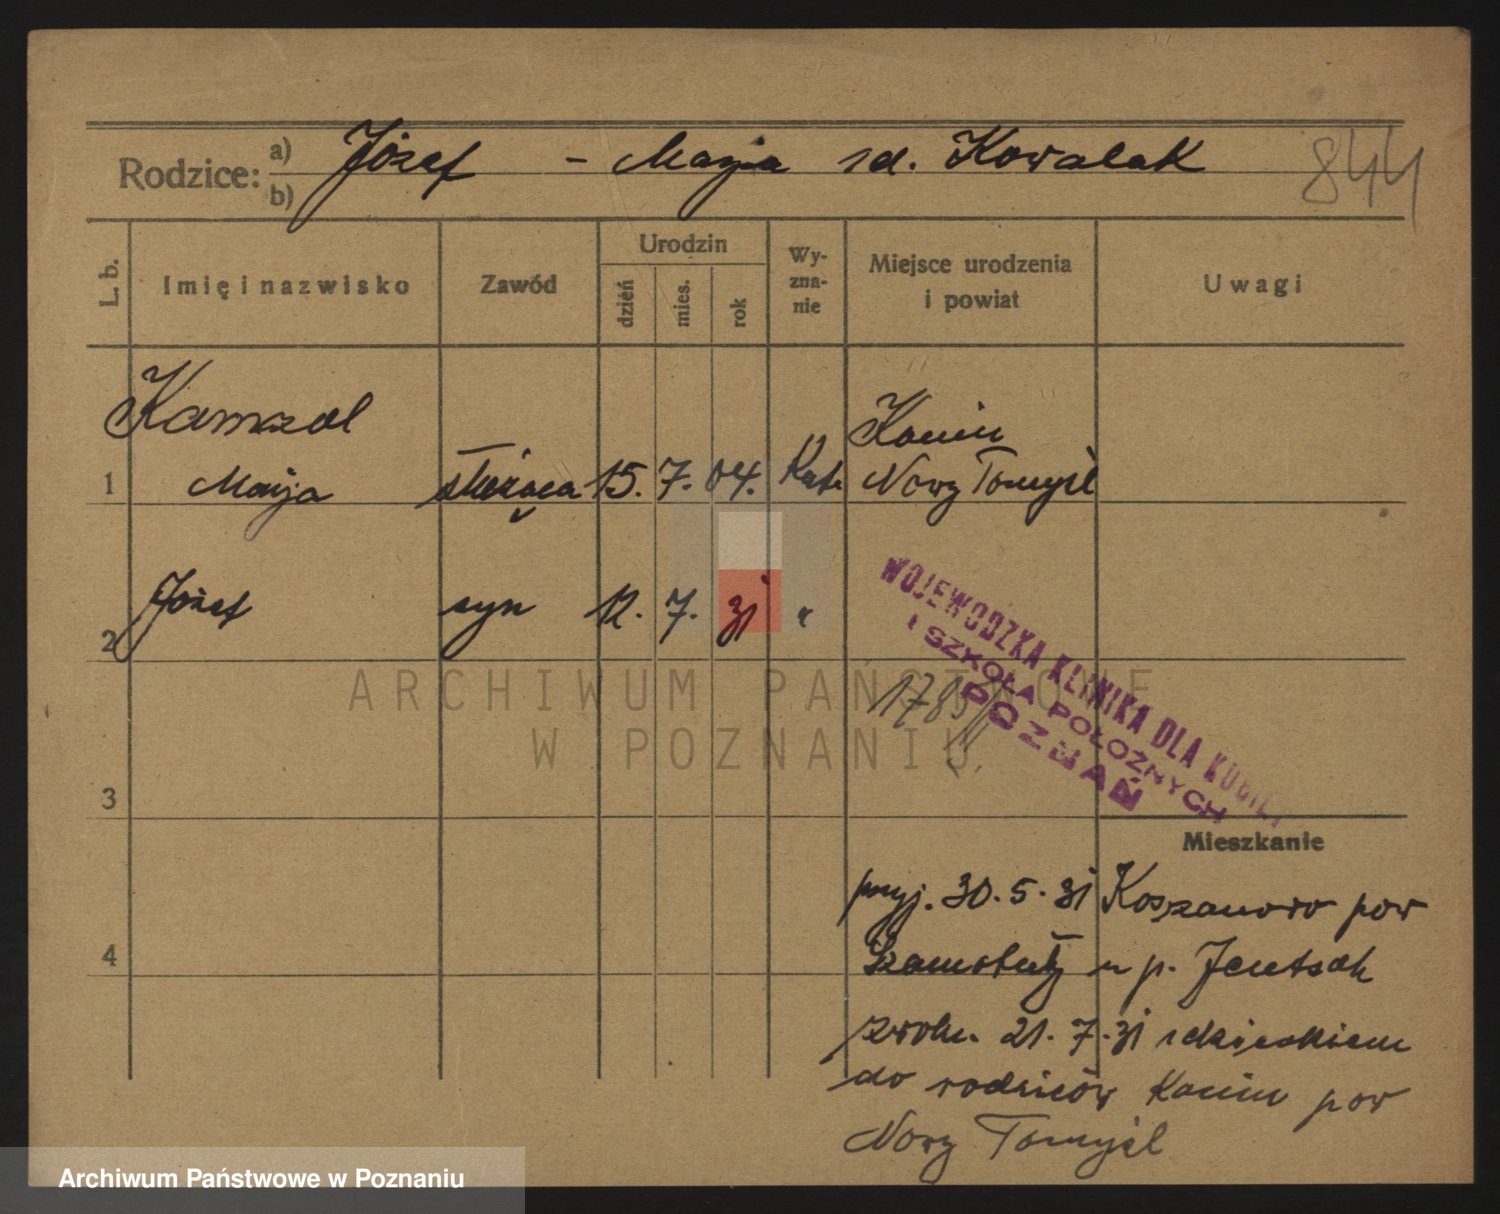 Rodzice: a) b) Józef - Marja zd. Kowalak
844
L. b.
Imię i nazwisko
Zawód
Urodzin
dzień
mies.
rok
Wy-
zna-
nie
Miejsce urodzenia
i powiat
Uwagi
Kamzol Konin
1 Marja służąca 15. 7. 04. Kat. Nowy Tomyśl
2 Józef syn 12. 7. 31 "
WOJEWÓDZKA KLINIKA DLA KOBIET
I SZKOŁA POŁOŻNYCH
POZNAŃ
ARCHIWUM PAŃSTWOWE
W POZNANIU
3
Mieszkanie
przyj. 30. 5. 31 Koszanowo pow
4
Szamotuły u p. Jentsch
zwoln. 21. 7. 31 z dzieckiem
do rodziców Konin pow
Nowy Tomyśl
Archiwum Państwowe w Poznaniu